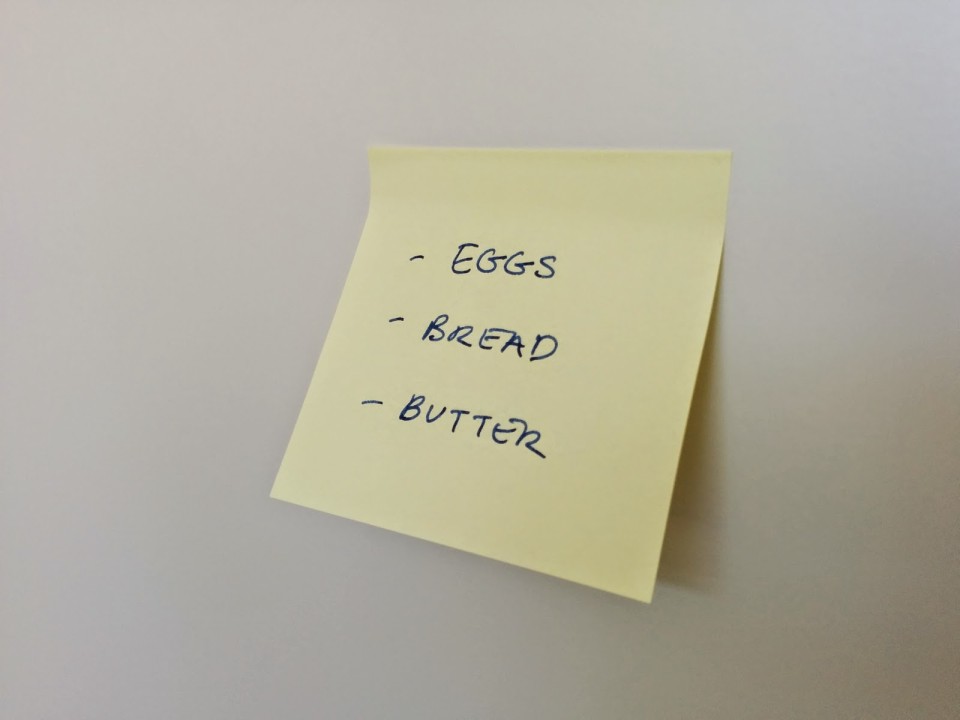 - EGGS
- BREAD
- BUTTER